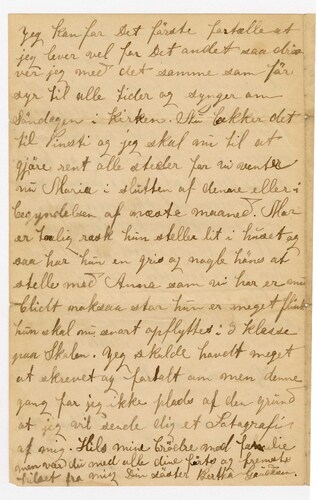 Jeg kan for Det förste fortælle at
jeg lever vel for Det andet saa driv
ver jeg med det samme som før
syr til alle tider og synger om
Söndagen i Kirken. Nu lakker det
til Pinsti og jeg skal nu til at
gjøre rent alle steder for vi venter
nu Maria i slutten af denne eller i
begyndelsen af næste maaned. Mor
er taalig rask hun steller lit i huset og
saa har hun en gris og nogle høns at
stelle med Anna som vi har er nu
blidt voksaa stor hun er meget flink
hun skal nu snart opflyttes i 3 klasse
paa Skolen. Jeg skulde havdt meget
at skrevet og fortalt om men denne
gang far jeg ikke plads af den grund
at jeg vil sende dig et Fotografi
af mig. Hils mine brödre med familie
men vær du med alle dine og fremste
hilset fra mig Din söster Bertha